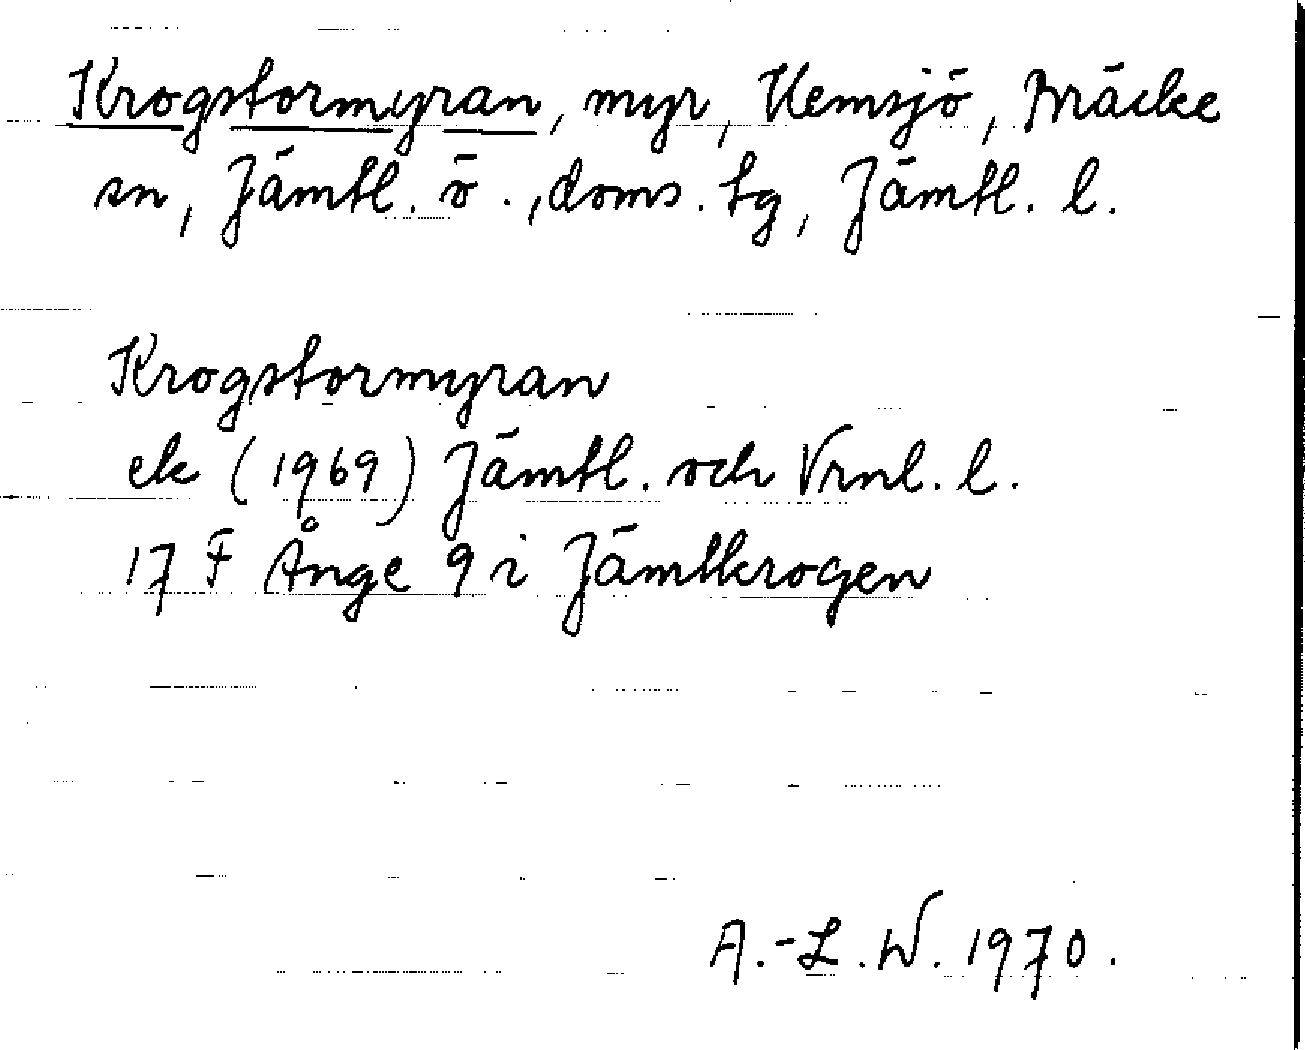 Krogstormyran, myr, Hemsjö, Bräcke
sn, Jämtl. ö., doms. tg, Jämtl. l.
Krogstormyran
ek (1969) Jämtl. och Vrnl. l.
17 F Ånge 9 i Jämtkrogen
A.-L.W. 1970.